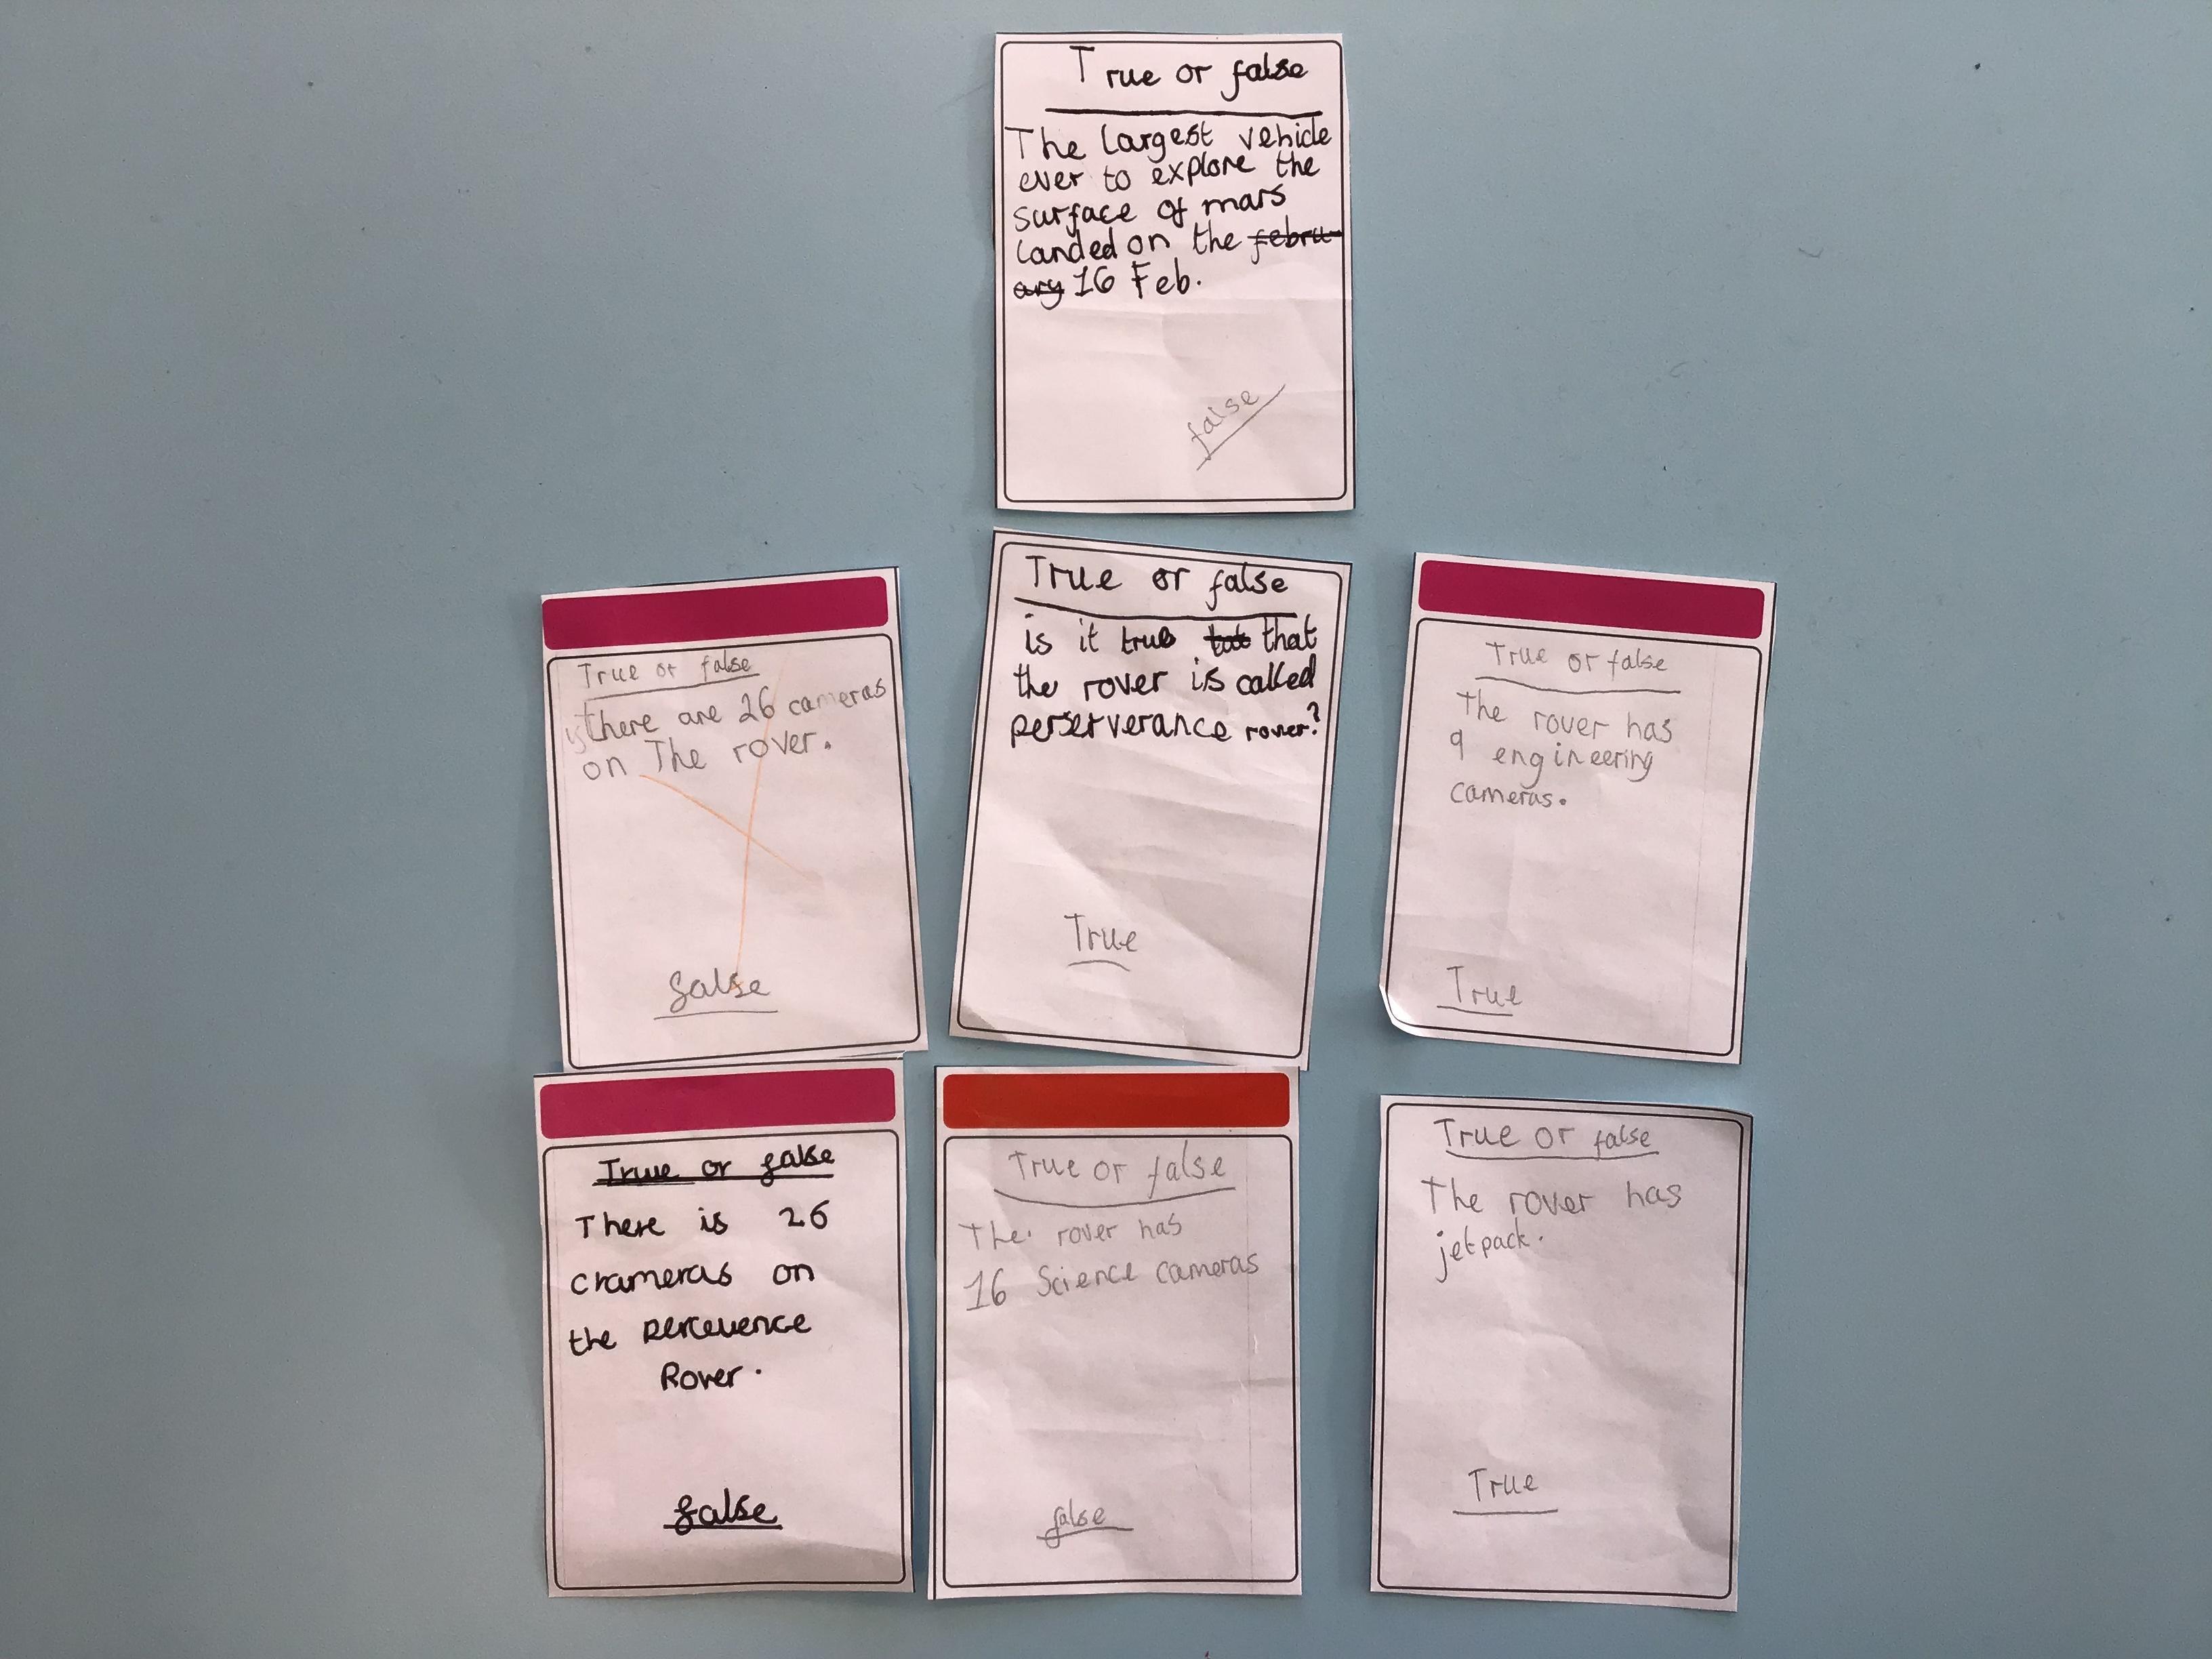 True or false
The largest vehicle
ever to explore the
surface of mars
landed on the febru-
ary 16 Feb.
false
True or false
there are 26 cameras
on The rover.
false
True or false
is it true tat that
the rover is called
perserverance rover?
True
True or false
The rover has
9 engineering
cameras.
True
True or false
There is 26
crameras on
the percevence
Rover.
false
True or false
The rover has
16 Science cameras
false
True or false
The rover has
jetpack.
True